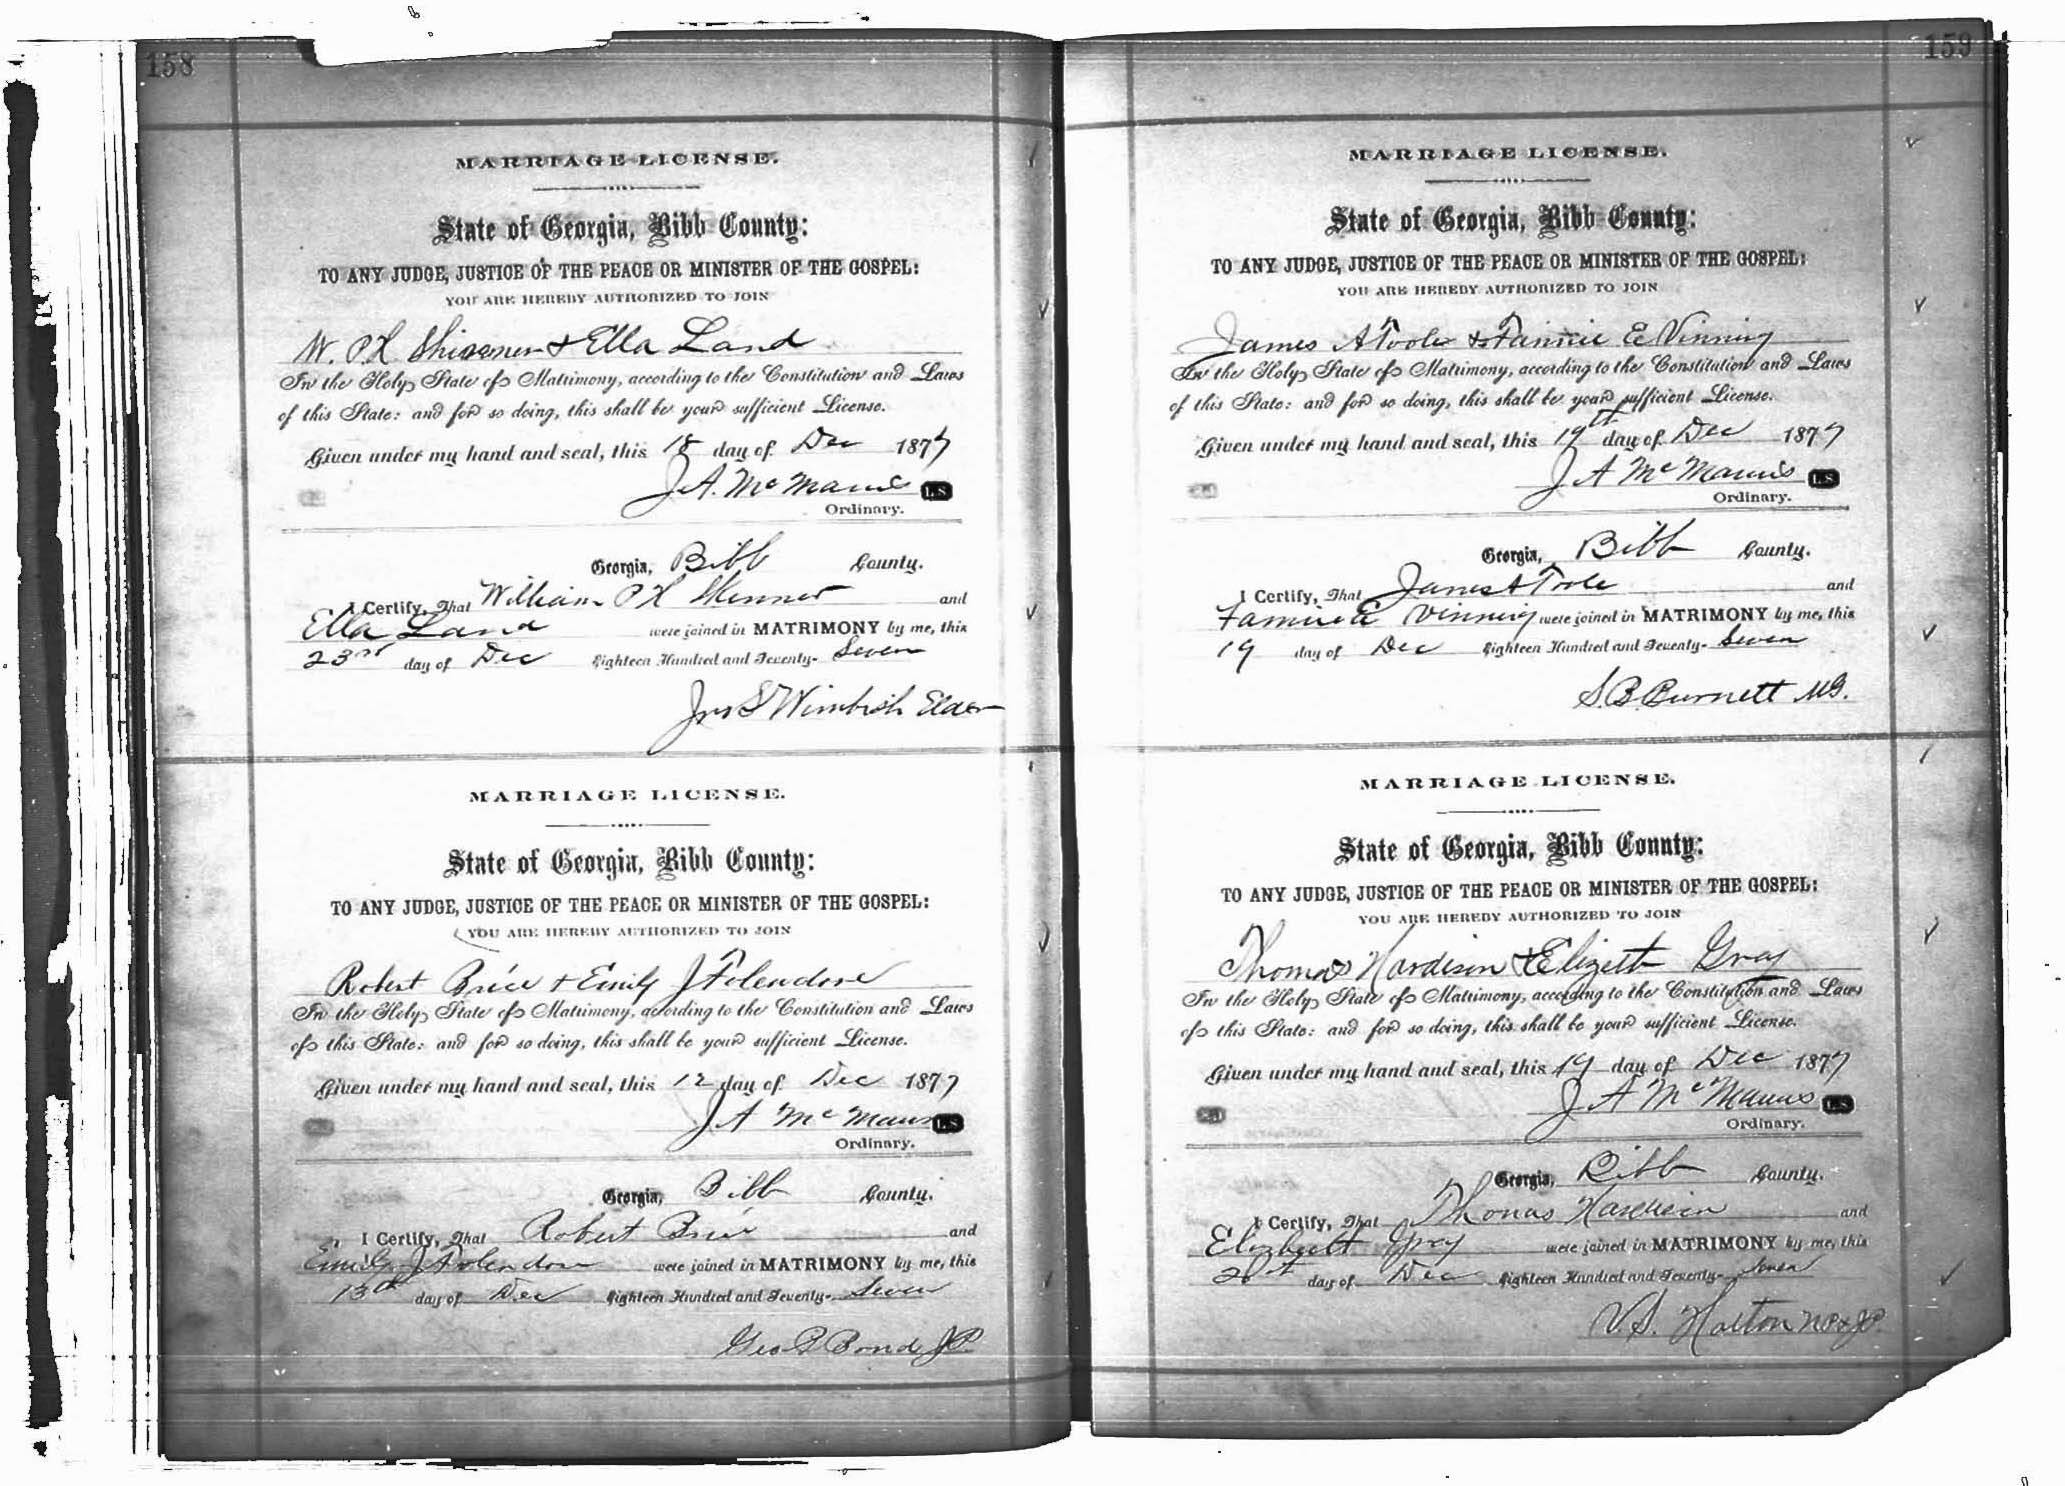 158
MARRIAGE LICENSE.
State of Georgia, Bibb County:
TO ANY JUDGE, JUSTICE OF THE PEACE OR MINISTER OF THE GOSPEL:
YOU ARE HEREBY AUTHORIZED TO JOIN
W. P. H. & Ella Land
In the Holy State of Matrimony, according to the Constitution and Laws
of this State: and for so doing, this shall be your sufficient License.
Given under my hand and seal, this 18 day of Dec 1877
J. A. McManus L.S
Ordinary.
Georgia, Bibb County.
I Certify, That William P H Skinner and
Ella Land were joined in MATRIMONY by me, this
23rd day of Dec Eighteen Hundred and Seventy- Seven
Jno S Wimbish Elder
MARRIAGE LICENSE.
State of Georgia, Bibb County:
TO ANY JUDGE, JUSTICE OF THE PEACE OR MINISTER OF THE GOSPEL:
YOU ARE HEREBY AUTHORIZED TO JOIN
Robert Brice & Emily J Folendore
In the Holy State of Matrimony, according to the Constitution and Laws
of this State: and for so doing, this shall be your sufficient License.
Given under my hand and seal, this 12 day of Dec 1877
J A McManus L.S
Ordinary.
Georgia, Bibb County.
I Certify, That Robert Brice and
Emily J Folendore were joined in MATRIMONY by me, this
13th day of Dec Eighteen Hundred and Seventy- Seven
Geo P Bond JP.
159
MARRIAGE LICENSE.
State of Georgia, Bibb County:
TO ANY JUDGE, JUSTICE OF THE PEACE OR MINISTER OF THE GOSPEL:
YOU ARE HEREBY AUTHORIZED TO JOIN
James A Toole & Fannie E Vinning
In the Holy State of Matrimony, according to the Constitution and Laws
of this State: and for so doing, this shall be your sufficient License.
Given under my hand and seal, this 19th day of Dec 1877
J A McManus L.S
Ordinary.
Georgia, Bibb County.
I Certify, That James A Toole and
Fannie E Vinning were joined in MATRIMONY by me, this
19 day of Dec Eighteen Hundred and Seventy- Seven
S. B. Burnett MG.
MARRIAGE LICENSE.
State of Georgia, Bibb County:
TO ANY JUDGE, JUSTICE OF THE PEACE OR MINISTER OF THE GOSPEL:
YOU ARE HEREBY AUTHORIZED TO JOIN
Thomas Hardison & Elizebeth Gray
In the Holy State of Matrimony, according to the Constitution and Laws
of this State: and for so doing, this shall be your sufficient License.
Given under my hand and seal, this 19 day of Dec 1877
J A McManus L.S
Ordinary.
Georgia, Bibb County.
I Certify, That Thomas Hardison and
Elizabeth Gray were joined in MATRIMONY by me, this
day of Dec Eighteen Hundred and Seventy- Seven
V. S. Holton NP & JP.